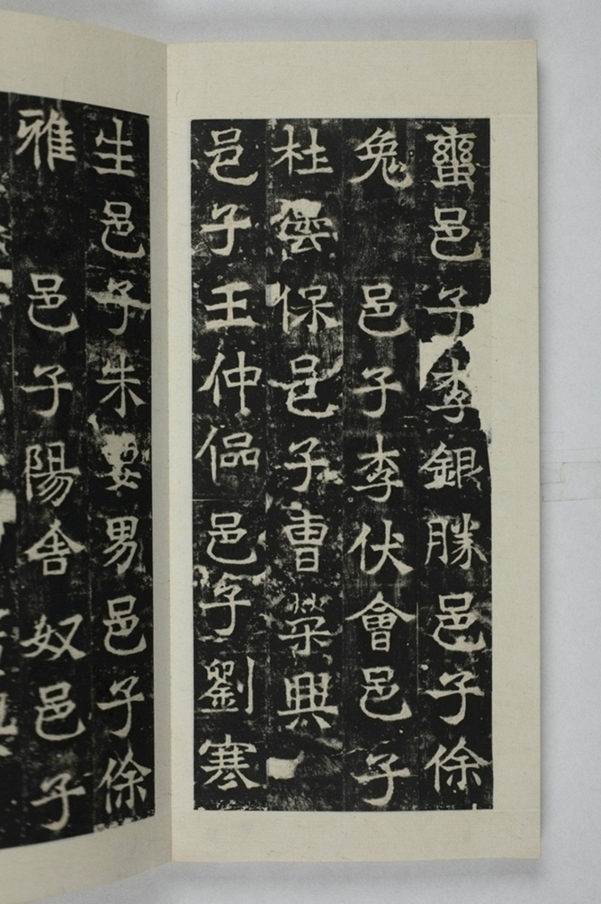 蠻邑子李銀勝邑子徐
兔 邑子李伏會邑子
杜雲保邑子曹榮興
邑子王仲侷邑子劉寒
生邑子朱要男邑子徐
雅 邑子陽舍奴邑子